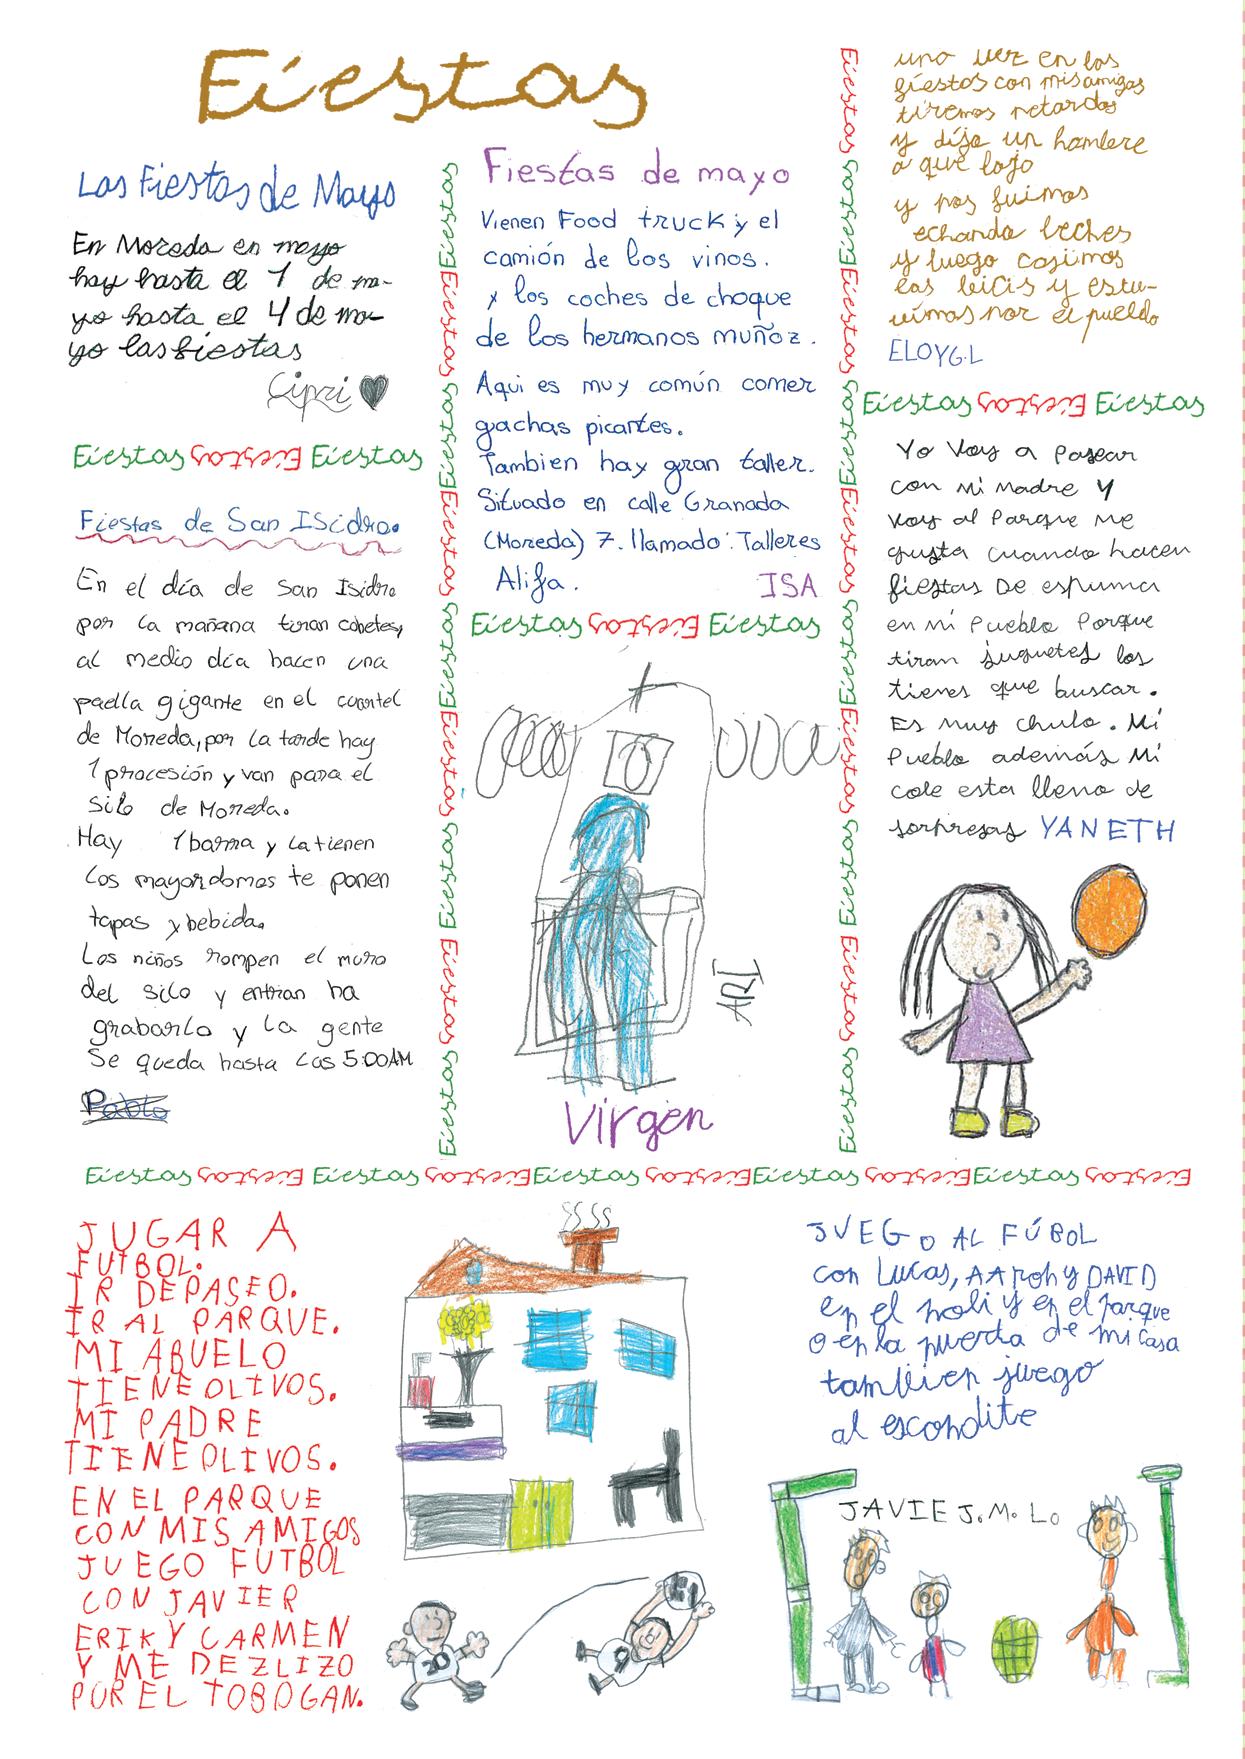 Fiestas
Las Fiestas de Mayo
En Moreda en mayo
hay hasta el 1 de ma-
yo hasta el 4 de ma-
yo las fiestas
Cipri
Fiestas Fiestas Fiestas
Fiestas de San Isidro.
En el día de San Isidro
por la mañana tiran cohetes,
al medio día hacen una
paella gigante en el cuartel
de Moreda, por la tarde hay
1 procesión y van para el
silo de Moreda.
Hay 1 barra y la tienen
los mayordomos te ponen
tapas y bebida.
Los niños rompen el muro
del silo y entran ha
grabarlo y la gente
Se queda hasta las 5:00AM
Pablo
Fiestas Fiestas Fiestas Fiestas Fiestas Fiestas Fiestas Fiestas Fiestas
Fiestas de mayo
Vienen Food truck y el
camión de los vinos.
y los coches de choque
de los hermanos muñoz.
Aqui es muy común comer
gachas picantes.
Tambien hay gran taller.
Situado en calle Granada
(Moreda) 7. llamado: Talleres
Alifa.
ISA
Fiestas Fiestas Fiestas
ARI
Virgen
Fiestas Fiestas Fiestas Fiestas Fiestas Fiestas Fiestas Fiestas Fiestas Fiestas
una vez en las
fiestas con mis amigos
tiremos petardos
y dijo un hombre
a que lojo
y nos fuimos
echando leches
y luego cojimos
las bicis y estu-
vimos por el pueblo
ELOY G.L
Fiestas Fiestas Fiestas
Yo Voy a Pasear
con mi madre y
voy al Parque me
gusta cuando hacen
fiestas De espuma
en mi Pueblo Porque
tiran juguetes los
tienes que buscar.
Es muy chulo. Mi
Pueblo además Mi
cole esta lleno de
sorpresas YANETH
Fiestas Fiestas Fiestas Fiestas Fiestas Fiestas Fiestas Fiestas Fiestas Fiestas
JUGAR A
FUTBOL.
IR DE PASEO.
IR AL PARQUE.
MI ABUELO
TIENE OLIVOS.
MI PADRE
TIENE OLIVOS.
EN EL PARQUE
CON MIS AMIGOS
JUEGO FUTBOL
CON JAVIER
ERIK Y CARMEN
Y ME DEZLIZO
POR EL TOBOGAN.
20
JUEGO AL FÚBOL
con Lucas, AAroh y DAVID
en el poli y en el parque
o en la puerta de mi casa
tambien juego
al escondite
JAVIE J.M. Lo